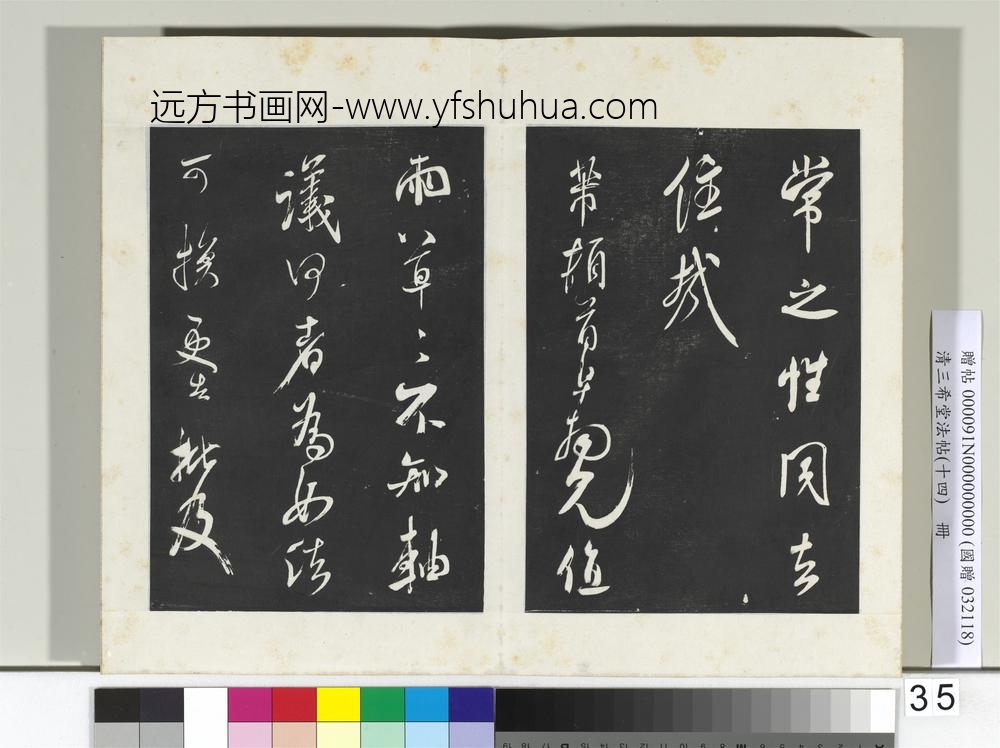 远方书画网-www.yfshuhua.com
常之性同去
住哉
芾頓首
值
雨草〻不知軸
議何者為如法
可換更
批及
贈帖 000091N000000000 (國贈 032118)
清三希堂法帖(十四) 冊
35